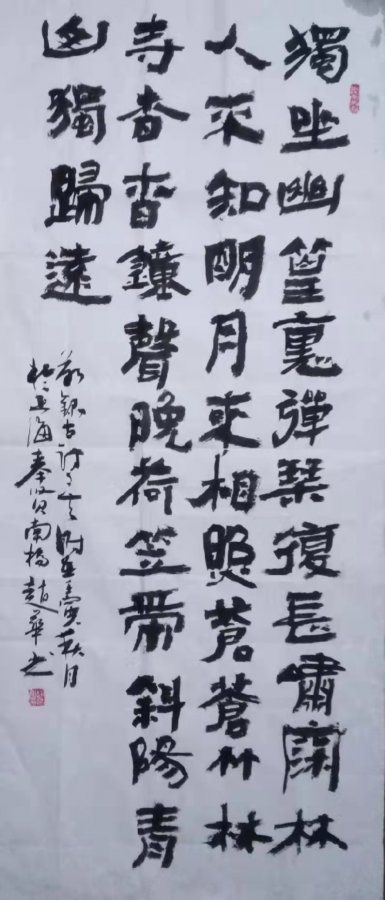 獨坐幽篁裏彈琴復長嘯深林
人不知明月来相照蒼蒼竹林
寺杳杳鐘聲晚荷笠帶斜陽青
山獨歸遠
錄古詩二首時在壬寅秋月
於上海奉賢南橋趙華书